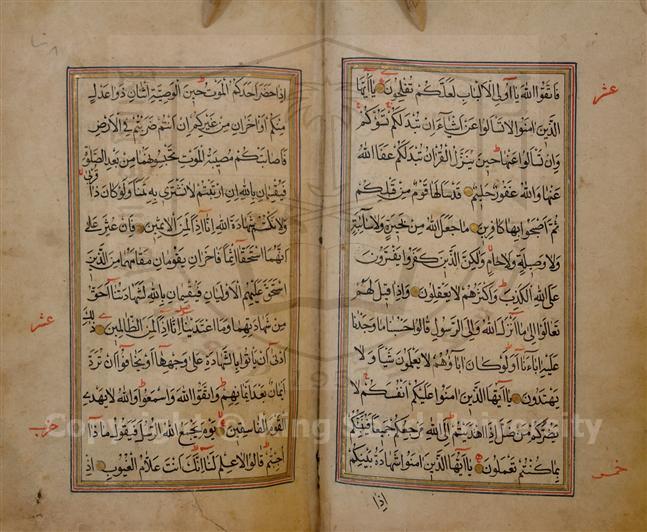 فاتقوا الله يا اولي الالباب لعلكم تفلحون يا ايها
الذين امنوا لا تسالوا عن اشياء ان تبدلكم تسؤكم
وان تسالوا عنها حين ينزل القران تبدلكم عفا الله
عنها والله غفور حليم قد سالها قوم من قبلكم
ثم اصبحوا بها كافرين ما جعل الله من بحيرة ولا سائبة
ولا وصيلة ولا حام ولكن الذين كفروا يفترون
على الله الكذب واكثرهم لا يعقلون واذا قيل لهم
تعالوا الى ما انزل الله والى الرسول قالوا حسبنا ما وجدنا
عليه اباءنا اولو كان اباؤهم لا يعلمون شيئا ولا
يهتدون يا ايها الذين امنوا عليكم انفسكم لا
يضركم من ضل اذا اهتديتم الى الله مرجعكم جميعا فينبئكم
بما كنتم تعملون يا ايها الذين امنوا شهادة بينكم
اذا
عشر
خمس
اذا حضر احدكم الموت حين الوصية اثنان ذوا عدل
منكم او اخران من غيركم ان انتم ضربتم في الارض
فاصابتكم مصيبة الموت تحبسونهما من بعد الصلوة
فيقسمان بالله ان ارتبتم لا نشتري به ثمنا ولو كان ذا قربى
ولا نكتم شهادة الله انا اذا لمن الاثمين فان عثر على
انهما استحقا اثما فاخران يقومان مقامهما من الذين
استحق عليهم الاوليان فيقسمان بالله لشهادتنا احق
من شهادتهما وما اعتدينا انا اذا لمن الظالمين ذلك
ادنى ان ياتوا بالشهادة على وجهها او يخافوا ان ترد
ايمان بعد ايمانهم واتقوا الله واسمعوا والله لا يهدي
القوم الفاسقين يوم يجمع الله الرسل فيقول ماذا
اجبتم قالوا لا علم لنا انك انت علام الغيوب اذ
عشر
حزب
Copyright © King Saud University